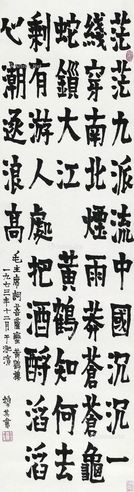 茫茫九派流中國沉沉一
綫穿南北煙雨莽蒼蒼龜
蛇鎖大江黃鶴知何去
剩有游人處把酒酹滔滔
心潮逐浪高
毛主席詞菩薩蠻黃鶴樓
一九六三年十二月于